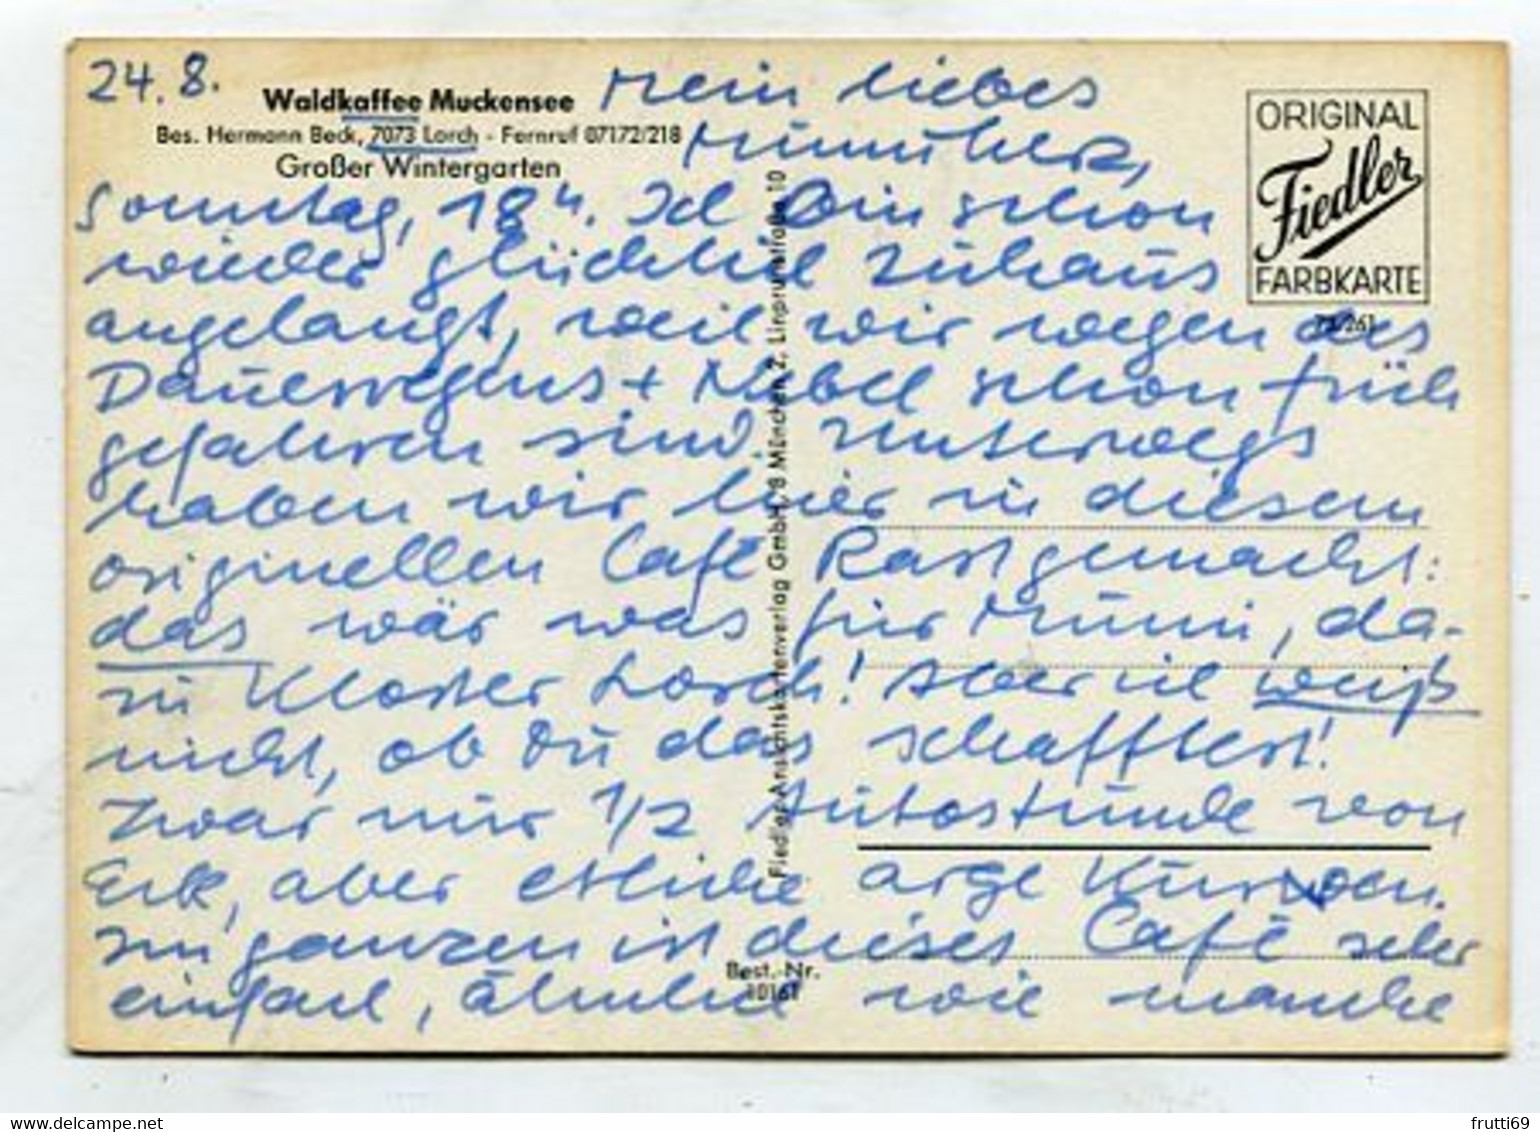 24.8.
Waldkaffee Muckensee
Bes. Hermann Beck, 7073 Lorch - Fernruf 07172/218
Großer Wintergarten
Mein liebes
Sonntag, 18 h. Ich bin schon
wieder glücklich zuhaus
angelangt, weil wir wegen des
Dauerregens + Nebel schon früh
gefahren sind. Unterwegs
haben wir hier in diesem
originellen Café Rast gemacht:
das wär was für Mumi, da-
zu Kloster Lorch! Aber ich weiß
nicht, ob Du das schafftest!
Zwar nur 1/2 Autostunde von
aber etliche arge Kurven.
Im ganzen ist dieses Café sehr
einfach, ähnlich wie manche
ORIGINAL
Fiedler
FARBKARTE
73/261
Fiedler Ansichtskartenverlag GmbH, 8 München 2, Linprunstraße 10
Best.-Nr.
10161
frutti69